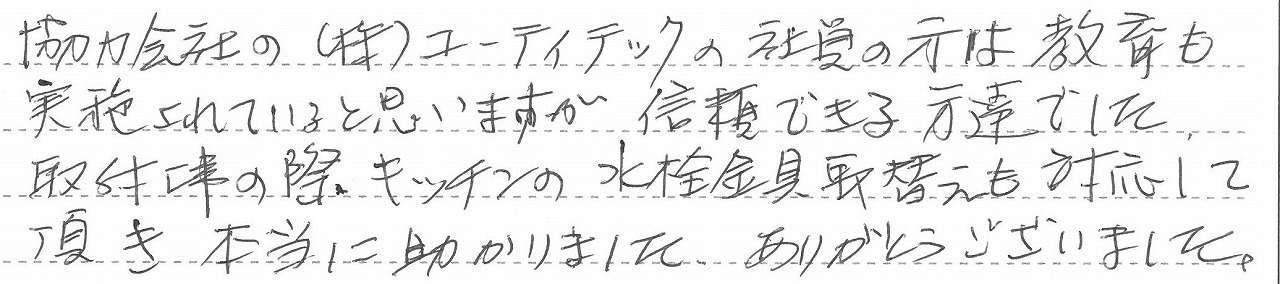 協力会社の(株)ユーティテックの社員の方は教育も
実施されていると思いますが信頼できる方達でした。
取付工事の際、キッチンの水栓金具取替えも対応して
頂き本当に助かりました。ありがとうございました。